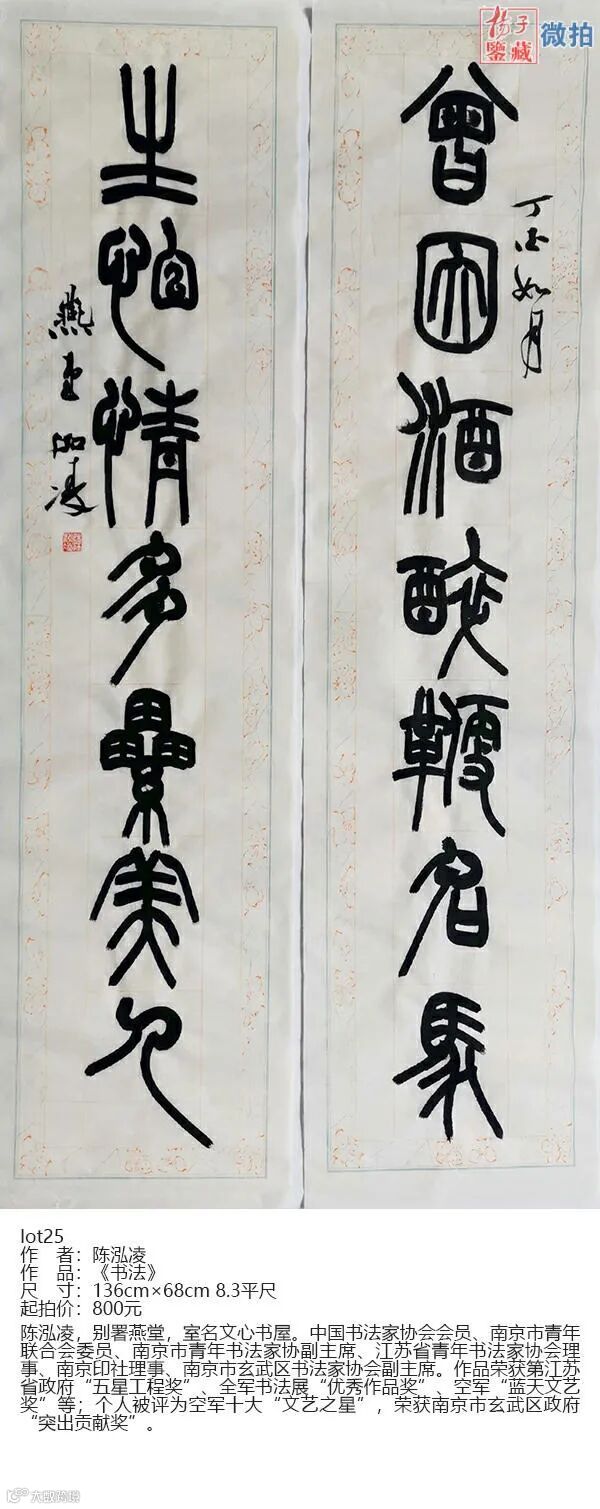 杨子
鉴藏
微拍
曾因酒醉鞭名马
丁酉如月
生怕情多累美人
燕堂泓凌
lot25
作 者：陈泓凌
作 品：《书法》
尺 寸：136cm×68cm 8.3平尺
起拍价：800元
陈泓凌，别署燕堂，室名文心书屋。中国书法家协会会员、南京市青年
联合会委员、南京市青年书法家协副主席、江苏省青年书法家协会理
事、南京印社理事、南京市玄武区书法家协会副主席。作品荣获第江苏
省政府“五星工程奖”、全军书法展“优秀作品奖”、空军“蓝天文艺
奖”等；个人被评为空军十大“文艺之星”，荣获南京市玄武区政府
“突出贡献奖”。
大数跨境